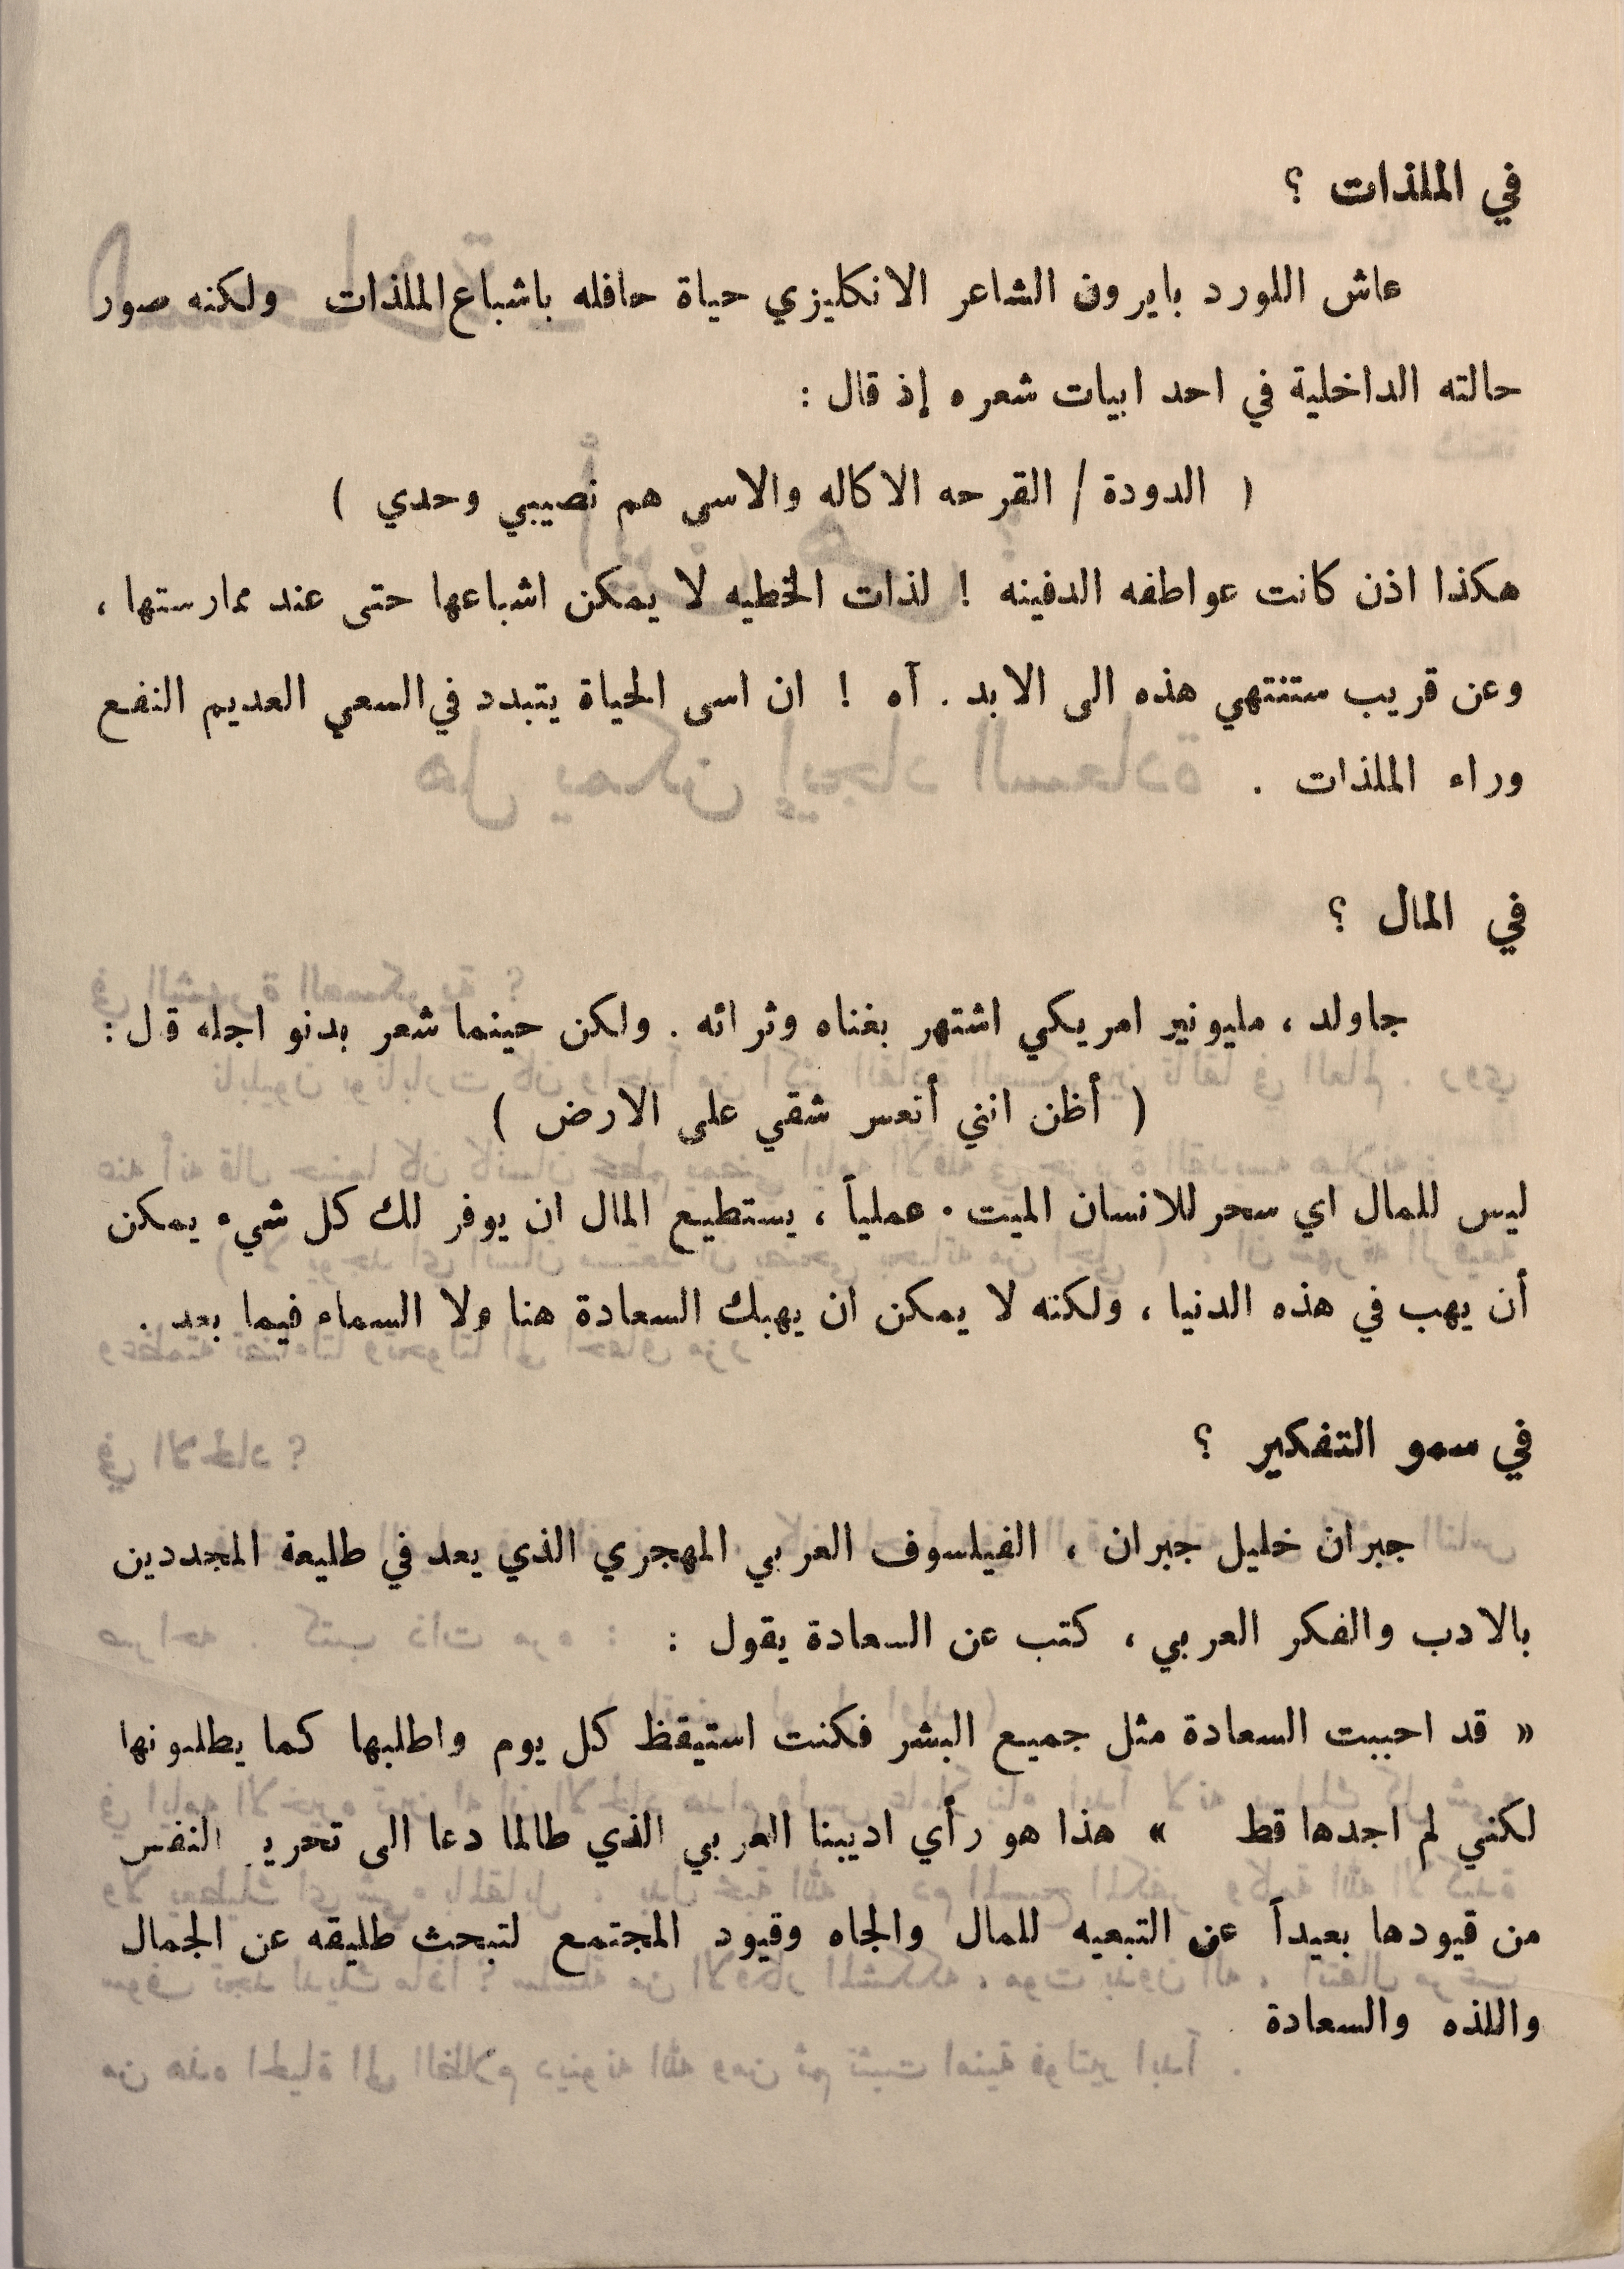 في الملذات ؟
عاش اللورد بايرون الشاعر الانكليزي حياة حافله باشباع الملذات ولكنه صور
حالته الداخلية في احد ابيات شعره إذ قال :
( الدودة / القرحه الاكاله والاسى هم نصيبي وحدي )
هكذا اذن كانت عواطفه الدفينه ! لذات الخطيه لا يمكن اشباعها حتى عند ممارستها ،
وعن قريب ستنتهي هذه الى الابد . آه ! ان اسى الحياة يتبدد في السعي العديم النفع
وراء الملذات .
في المال ؟
جاولد ، مليونير امريكي اشتهر بغناه وثرائه . ولكن حينما شعر بدنو اجله قال :
( أظن انني أتعس شقي على الارض )
ليس للمال اي سحر للانسان الميت . عملياً ، يستطيع المال ان يوفر لك كل شيء يمكن
أن يهب في هذه الدنيا ، ولكنه لا يمكن ان يهبك السعادة هنا ولا السماء فيما بعد .
في سمو التفكير ؟
جبران خليل جبران ، الفيلسوف العربي المهجري الذي يعد في طليعة المجددين
بالادب والفكر العربي ، كتب عن السعادة يقول :
« قد احببت السعادة مثل جميع البشر فكنت استيقظ كل يوم واطلبها كما يطلبونها
لكنني لم اجدها قط » هذا هو رأي اديبنا العربي الذي طالما دعا الى تحرير النفس
من قيودها بعيداً عن التبعيه للمال والجاه وقيود المجتمع لتبحث طليقه عن الجمال
واللذه والسعادة .